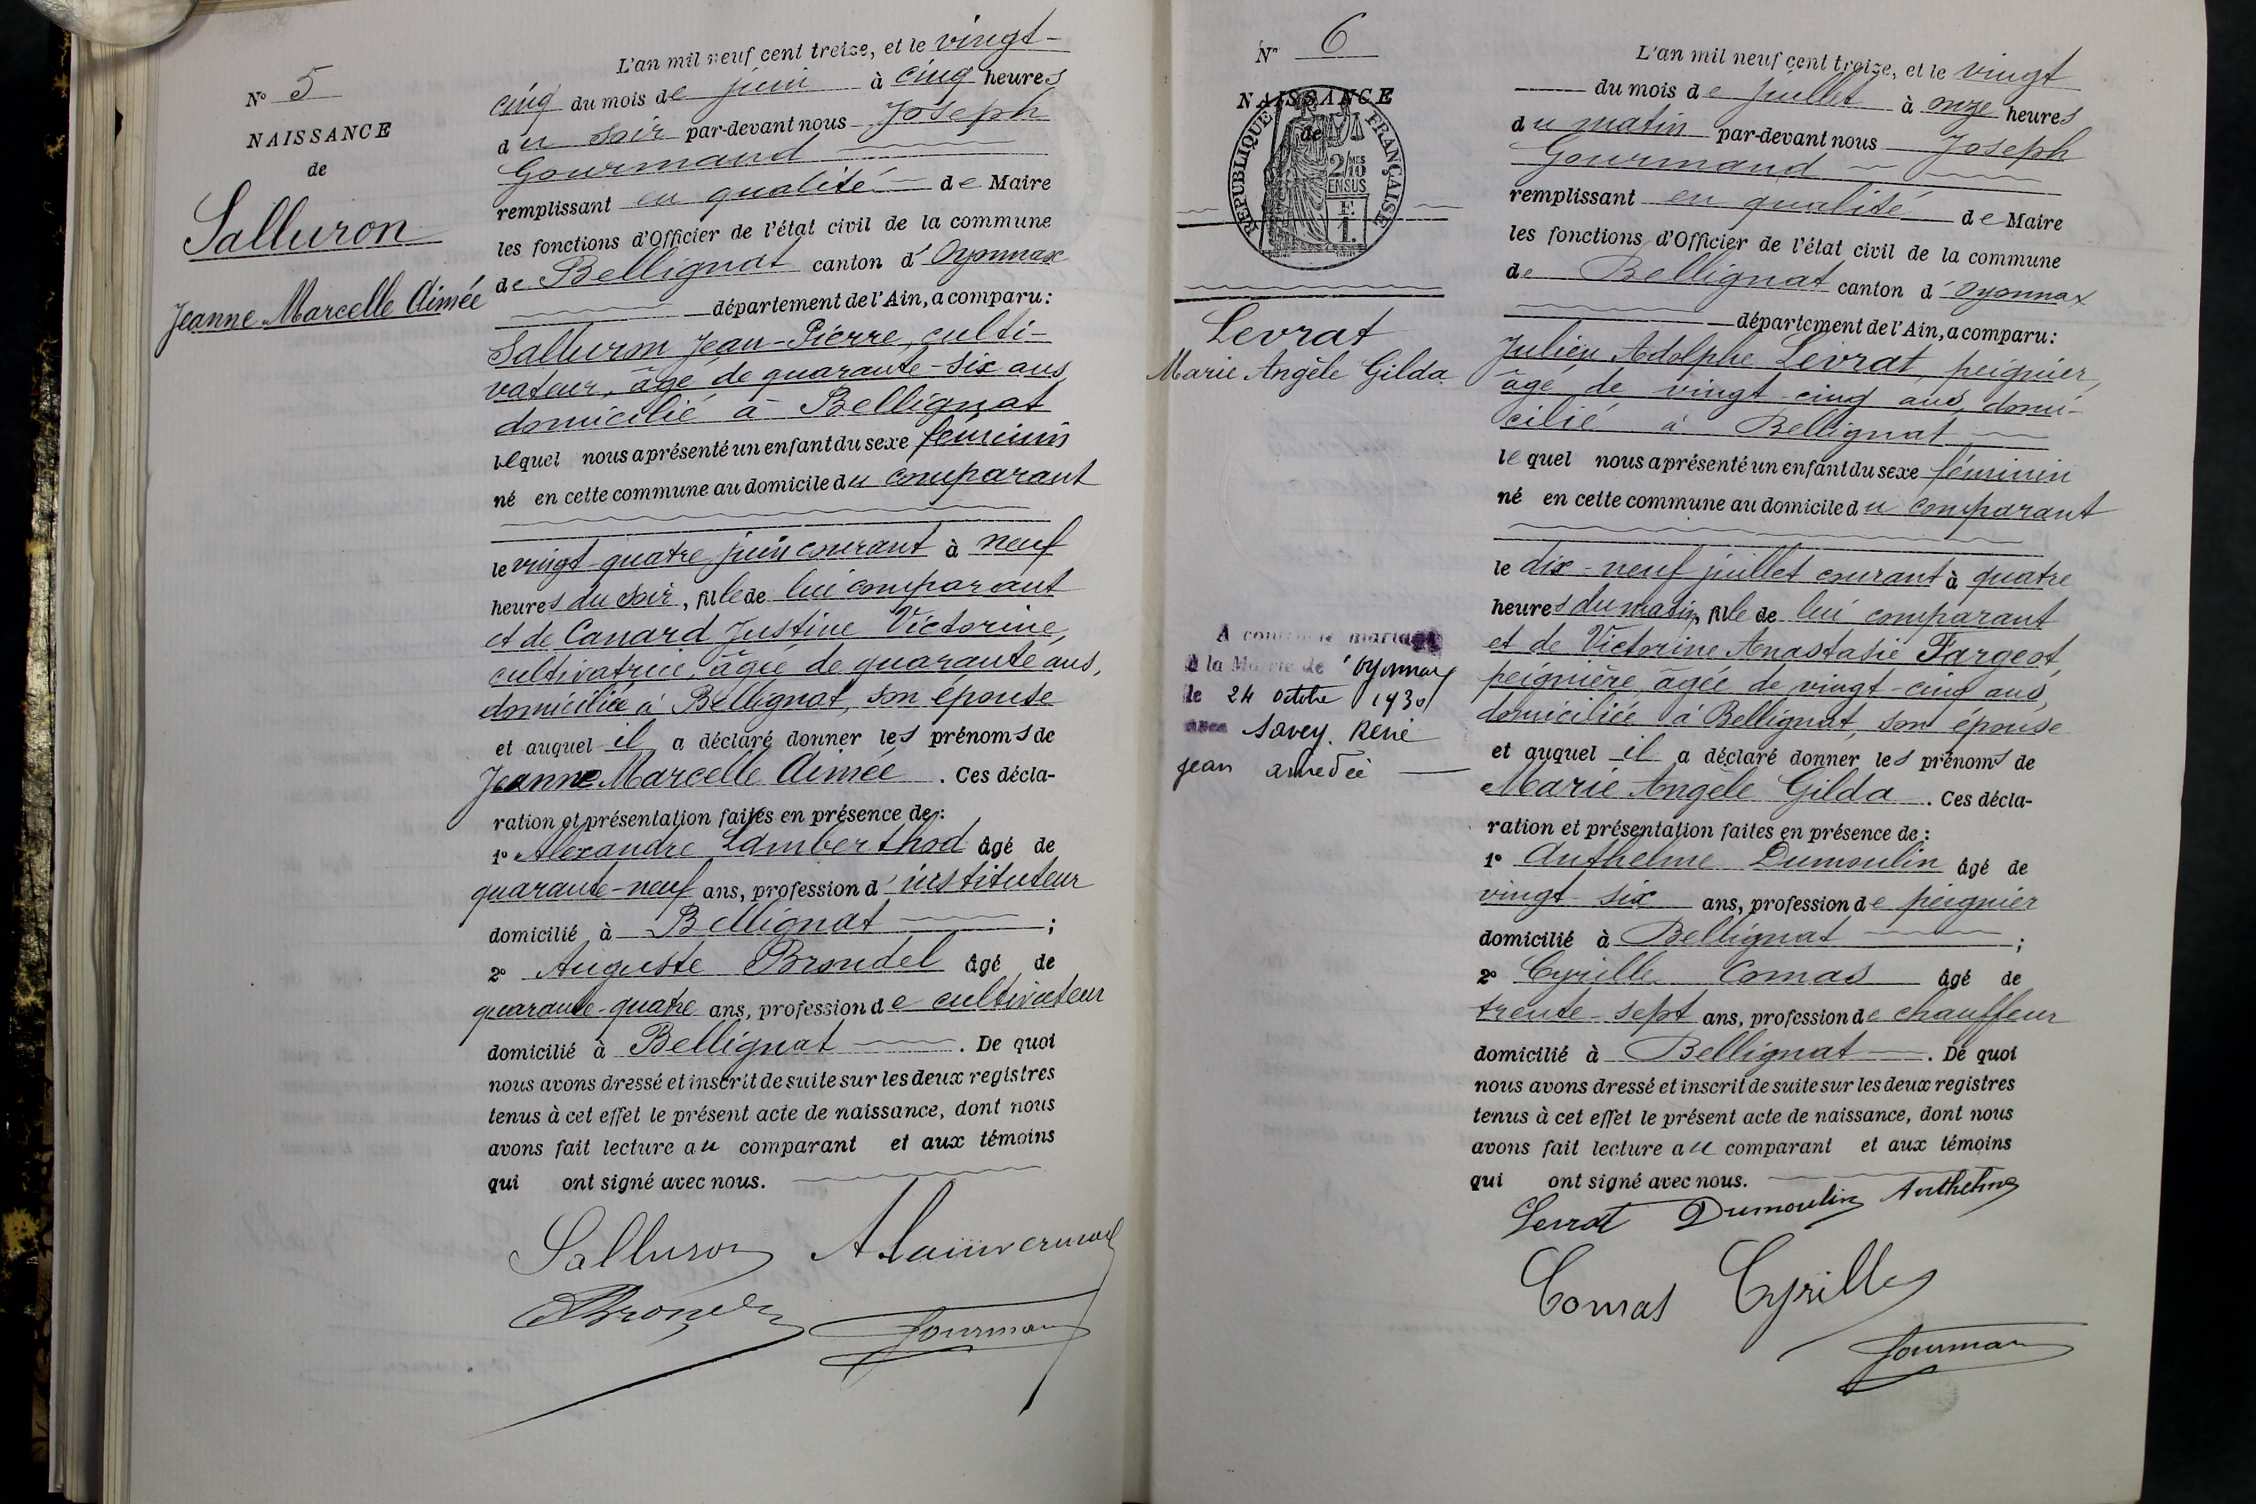 N° 5
NAISSANCE
de
Salluron
Jeanne Marcelle Aimée
L'an mil neuf cent treize, et le vingt-
cinq du mois de juin à cinq heures
du soir par-devant nous Joseph
Gourmand
remplissant en qualité de Maire
les fonctions d'Officier de l'état civil de la commune
de Bellignat canton d'Oyonnax
département de l'Ain, a comparu:
Salluron Jean-Pierre, culti-
vateur, âgé de quarante-six ans
domicilié à Bellignat
lequel nous a présenté un enfant du sexe féminin
né en cette commune au domicile du comparant
le vingt-quatre juin courant à neuf
heures du soir, fille de lui comparant
et de Canard Justine Victorine,
cultivatrice, âgée de quarante ans,
domiciliée à Bellignat, son épouse
et auquel il a déclaré donner les prénoms de
Jeanne Marcelle Aimée. Ces décla-
ration et présentation faites en présence de:
1° Alexandre Lamberthod âgé de
quarante-neuf ans, profession d'instituteur
domicilié à Bellignat ;
2° Auguste Brondel âgé de
quarante-quatre ans, profession de cultivateur
domicilié à Bellignat. De quoi
nous avons dressé et inscrit de suite sur les deux registres
tenus à cet effet le présent acte de naissance, dont nous
avons fait lecture au comparant et aux témoins
qui ont signé avec nous.
Salluron
Gourman
N° 6
NAISSANCE
de
RÉPUBLIQUE FRANÇAISE
2/10 MES
EN SUS
F.
1.
Levrat
Marie Angèle Gilda
A contracté mariage
à la Mairie de Oyonnax
le 24 octobre 1930
avec Savey. René
jean amédée
L'an mil neuf cent treize, et le vingt
du mois de juillet à onze heures
du matin par-devant nous Joseph
Gourmand
remplissant en qualité de Maire
les fonctions d'Officier de l'état civil de la commune
de Bellignat canton d'Oyonnax
département de l'Ain, a comparu:
Julien Adolphe Levrat, peignier,
âgé de vingt-cinq ans, domi-
cilié à Bellignat
lequel nous a présenté un enfant du sexe féminin
né en cette commune au domicile du comparant
le dix-neuf juillet courant à quatre
heures du matin, fille de lui comparant
et de Victorine Anastasie Fargeot,
peignière, âgée de vingt-cinq ans,
domiciliée à Bellignat, son épouse
et auquel il a déclaré donner les prénoms de
Marie Angèle Gilda. Ces décla-
ration et présentation faites en présence de:
1° Anthelme Dumoulin âgé de
vingt-six ans, profession de peignier
domicilié à Bellignat ;
2° Cyrille Comas âgé de
trente-sept ans, profession de chauffeur
domicilié à Bellignat. De quoi
nous avons dressé et inscrit de suite sur les deux registres
tenus à cet effet le présent acte de naissance, dont nous
avons fait lecture au comparant et aux témoins
qui ont signé avec nous.
Levrat Dumoulin Anthelme
Comas Cyrille
Gourman